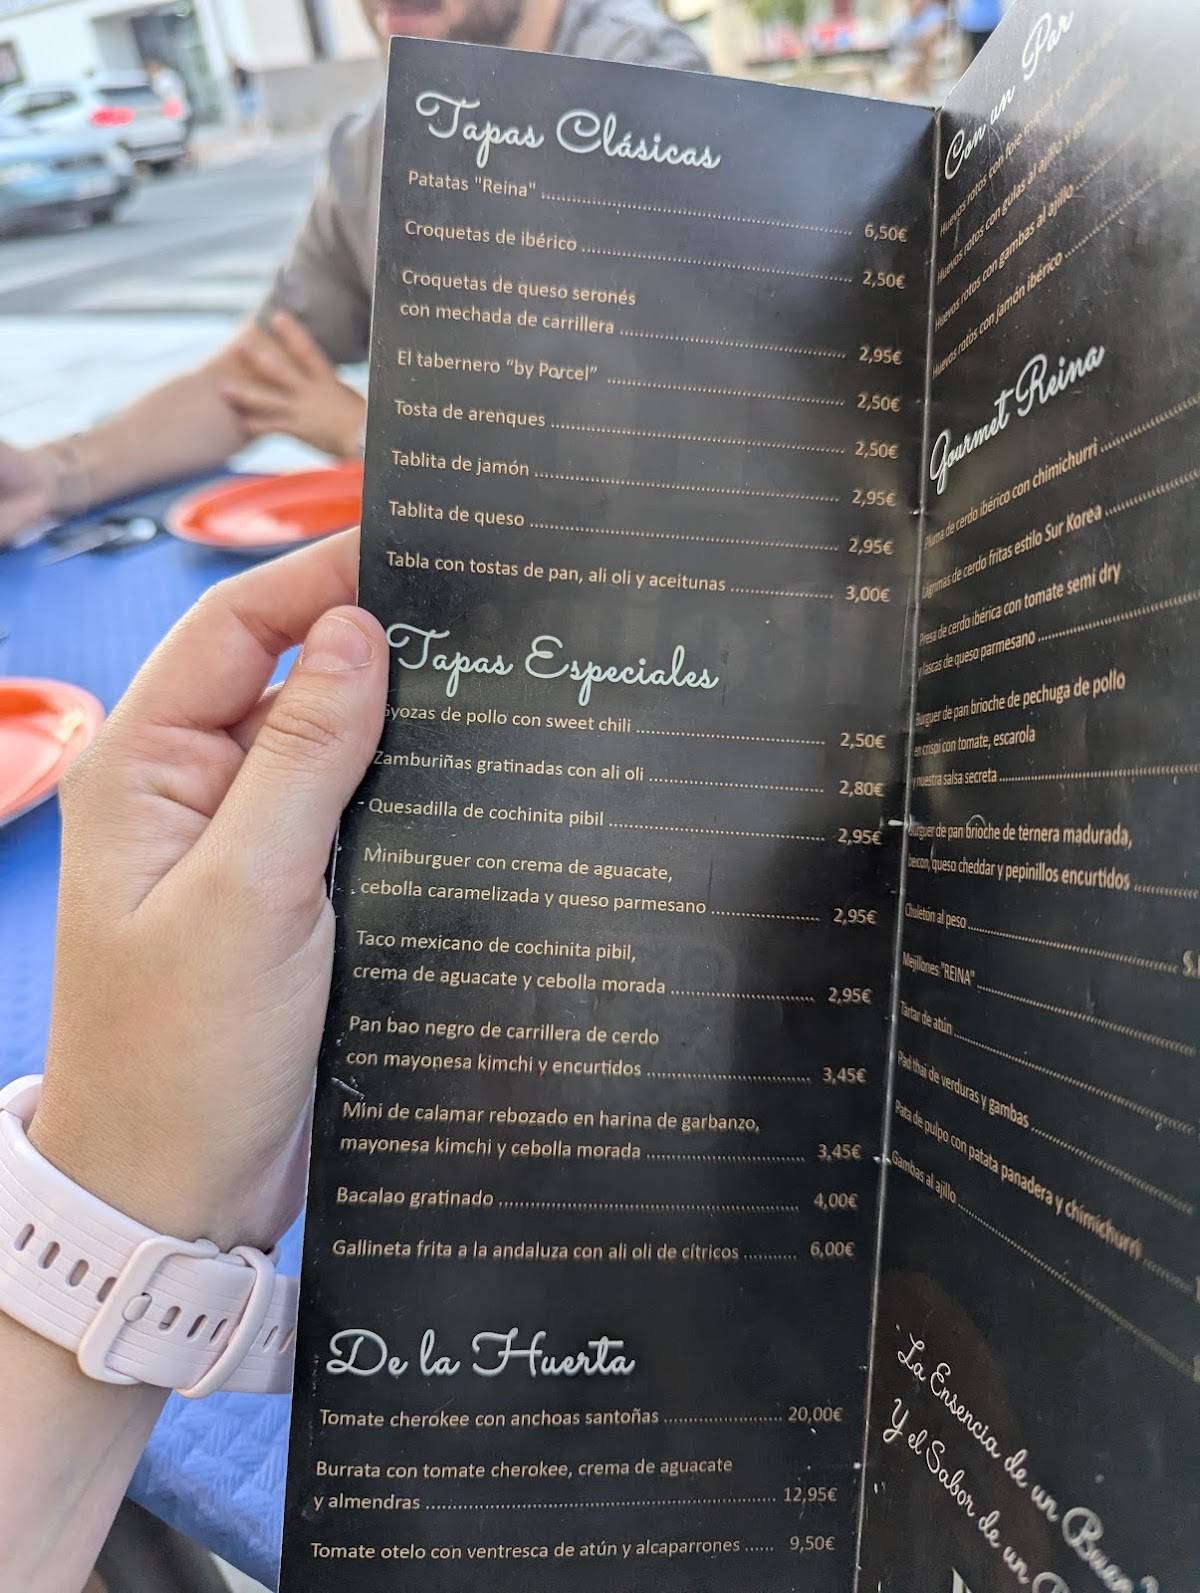 Tapas Clásicas
Patatas "Reina" 6,50€
Croquetas de ibérico 2,50€
Croquetas de queso seronés
con mechada de carrillera 2,95€
El tabernero "by Parcel" 2,50€
Tosta de arenques 2,50€
Tablita de jamón 2,95€
Tablita de queso 2,95€
Tabla con tostas de pan, ali oli y aceitunas 3,00€
Tapas Especiales
Gyozas de pollo con sweet chili 2,50€
Zamburiñas gratinadas con ali oli 2,80€
Quesadilla de cochinita pibil 2,95€
Miniburguer con crema de aguacate,
cebolla caramelizada y queso parmesano 2,95€
Taco mexicano de cochinita pibil,
crema de aguacate y cebolla morada 2,95€
Pan bao negro de carrillera de cerdo
con mayonesa kimchi y encurtidos 3,45€
Mini de calamar rebozado en harina de garbanzo,
mayonesa kimchi y cebolla morada 3,45€
Bacalao gratinado 4,00€
Gallineta frita a la andaluza con ali oli de cítricos 6,00€
De la Huerta
Tomate cherokee con anchoas santoñas 20,00€
Burrata con tomate cherokee, crema de aguacate
y almendras 12,95€
Tomate otelo con ventresca de atún y alcaparrones 9,50€
Con un Par
Huevos rotos con foie
Huevos rotos con gulas al ajillo y
Huevos rotos con gambas al ajillo
Huevos rotos con jamón ibérico
Gourmet Reina
Pluma de cerdo ibérico con chimichurri
Lágrimas de cerdo fritas estilo Sur Korea
Presa de cerdo ibérica con tomate semi dry
y lascas de queso parmesano
Burguer de pan brioche de pechuga de pollo
en crispi con tomate, escarola
y nuestra salsa secreta
Burguer de pan brioche de ternera madurada,
beicon, queso cheddar y pepinillos encurtidos
Chuletón al peso
Mejillones "REINA"
Tartar de atún
Pad thai de verduras y gambas
Pata de pulpo con patata panadera y chimichurri
Gambas al ajillo
La Ensencia de un
Y el Sabor de un